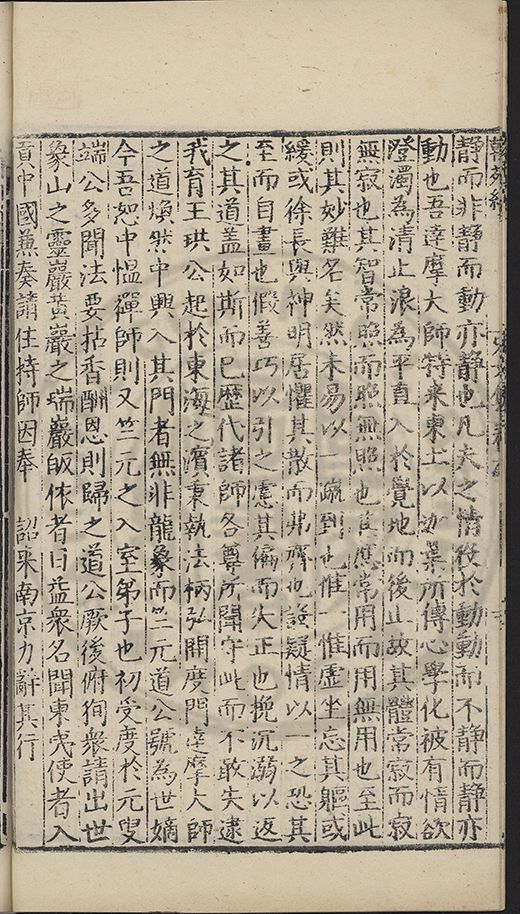 靜而非靜而動亦靜也凡夫之情役於動動而不靜而靜亦
動也吾達摩大師特来東土以迦葉所傳心學化被有情欲
澄濁為清止浪為平直入於覺地而後止故其體常寂而寂
無寂也其智常照而照無照也其應常用而用無用也至此
則其妙難名矣然未易以一蹴到也惟一惟虛坐忘其軀或
緩或徐長與神明居懼其散而弗齊也設疑情以一之恐其
至而自畫也假善巧以引之慮其偏而失正也挽沉溺以返
之其道盖如斯而已歷代諸師各尊所聞守此而不敢失逮
我育王珙公起於東海之濱秉執法柄弘開度門達摩大師
之道煥然中興入其門者無非龍象而竺元道公號為世嫡
今吾恕中愠禪師則又竺元之入室弟子也初受度於元叟
端公多聞法要拈香酬恩則歸之道公厥後俯狥衆請出世
象山之靈巖黃巖之瑞巖皈依者日益衆名聞東夷使者入
貢中國蒸奏請住持師因奉 詔来南京力辭其行